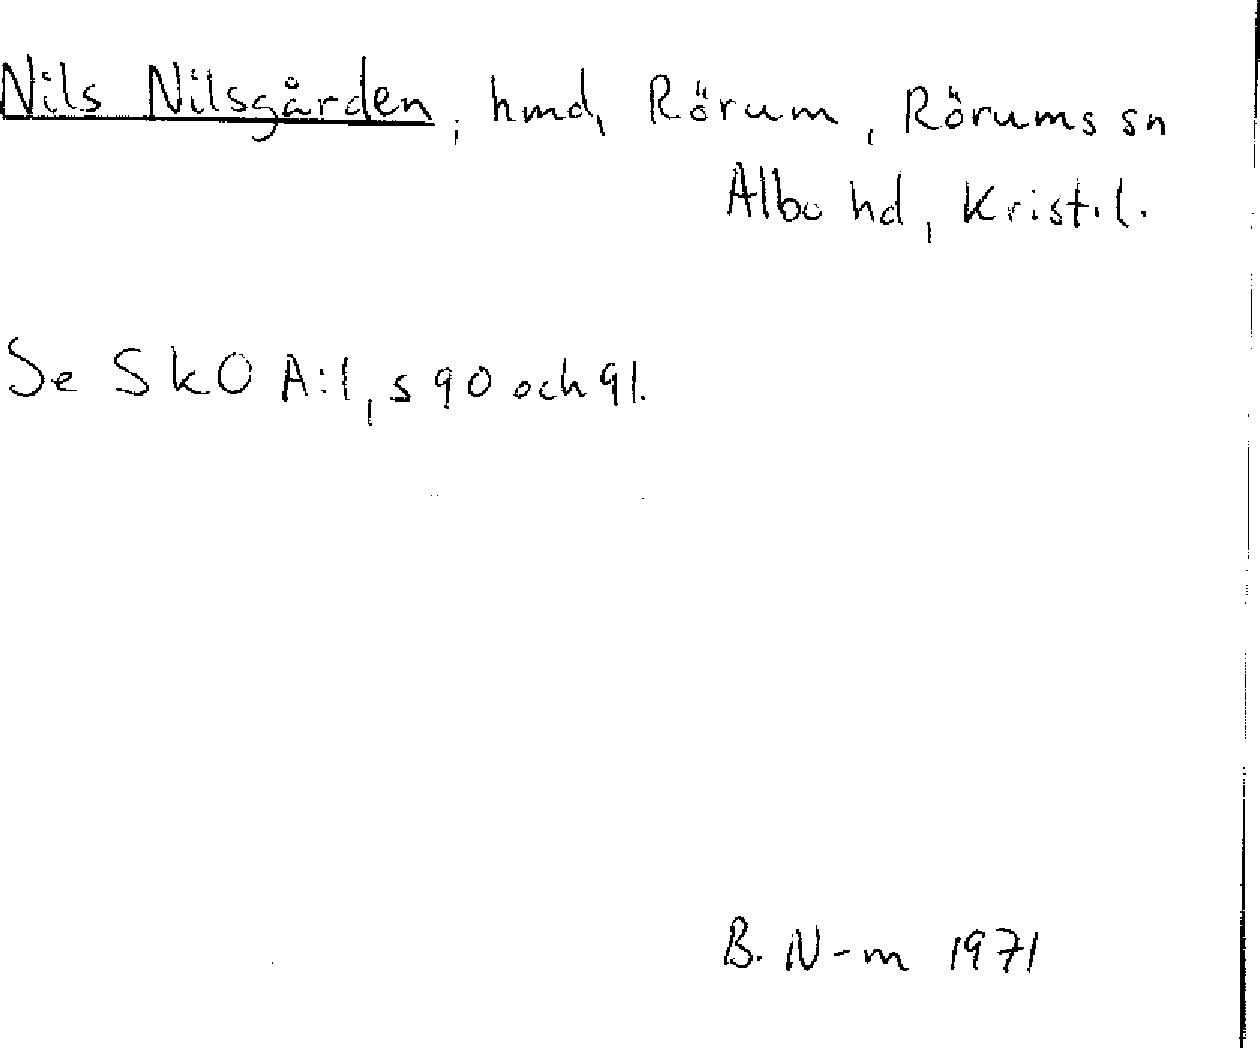 Nils Nilsgården, hmd, Rörum, Rörums sn
Albo hd, Krist.l.
Se SkO A:1, s 90 och 91.
B. N-m 1971